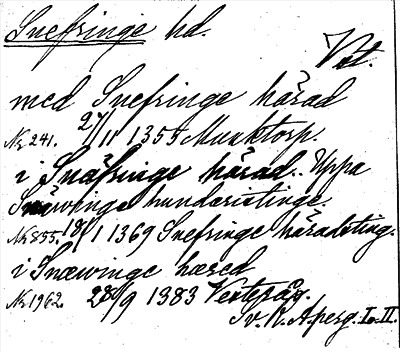 Snefringe hd.
Vstl.
med Snefringe härad
Nr 241. 27/11 1355 Munktorp.
i Snäfringe härad. Uppa
Snäwinge hundaristinge.
Nr 855. 18/1 1369 Snefringe häradsting.
i Snæwinge hæred
Nr 1962. 28/9 1383 Vesterås.
Sv. R. Aperg. I o. II.